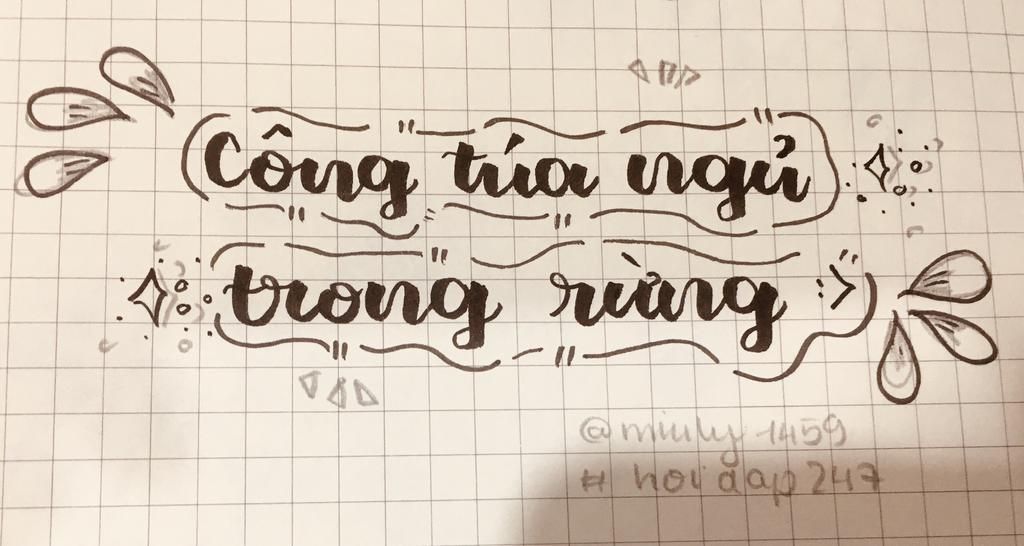 Công túa ngủ
trong rừng :>
@miuly1459
# hoidap247